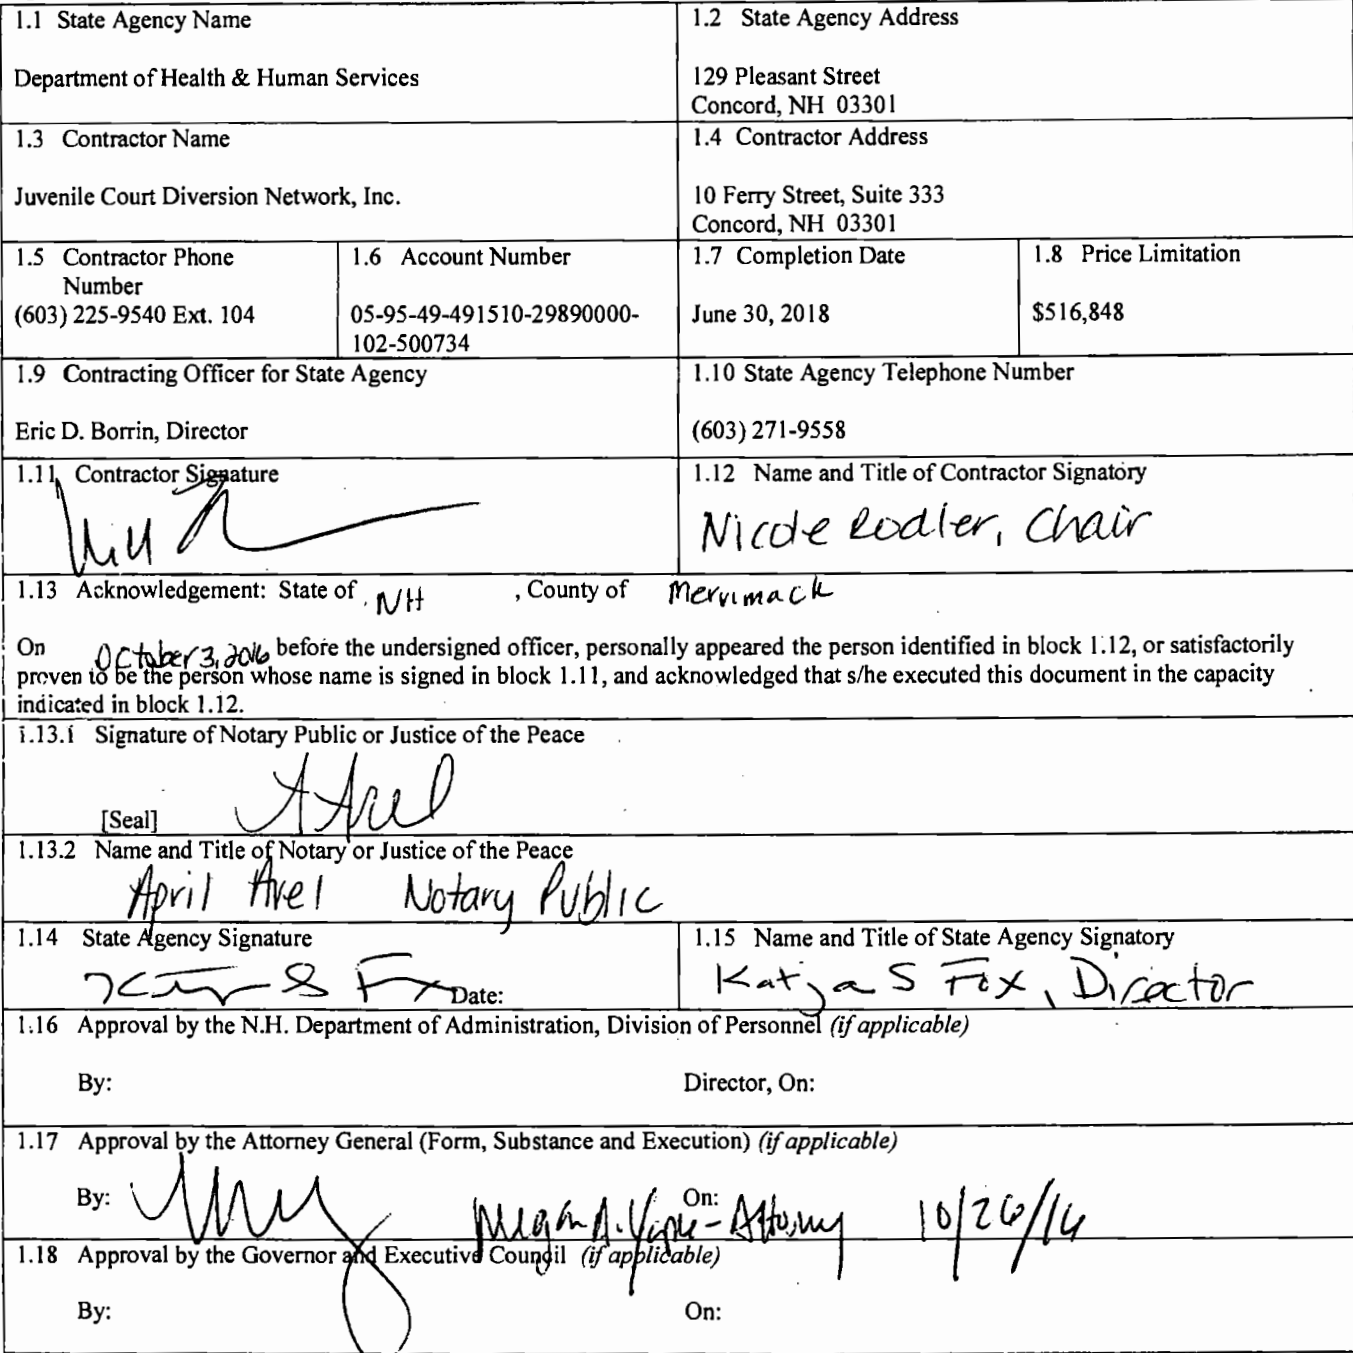 1.1 State Agency Name
1.2 State Agency Address
Department of Health & Human Services
129 Pleasant Street
Concord, NH 03301
1.3 Contractor Name
1.4 Contractor Address
Juvenile Court Diversion Network, Inc.
10 Ferry Street, Suite 333
Concord, NH 03301
1.5 Contractor Phone
Number
(603) 225-9540 Ext. 104
1.6 Account Number
05-95-49-491510-29890000-
102-500734
1.7 Completion Date
June 30, 2018
1.8 Price Limitation
$516,848
1.9 Contracting Officer for State Agency
Eric D. Borrin, Director
1.10 State Agency Telephone Number
(603) 271-9558
1.11 Contractor Signature
1.12 Name and Title of Contractor Signatory
Nicole Rodler, Chair
1.13 Acknowledgement: State of NH , County of Merrimack
On October 3, 2016 before the undersigned officer, personally appeared the person identified in block 1.12, or satisfactorily
proven to be the person whose name is signed in block 1.11, and acknowledged that s/he executed this document in the capacity
indicated in block 1.12.
1.13.1 Signature of Notary Public or Justice of the Peace
[Seal]
1.13.2 Name and Title of Notary or Justice of the Peace
April Avel Notary Public
1.14 State Agency Signature
Date:
1.15 Name and Title of State Agency Signatory
Katja S Fox, Director
1.16 Approval by the N.H. Department of Administration, Division of Personnel (if applicable)
By: Director, On:
1.17 Approval by the Attorney General (Form, Substance and Execution) (if applicable)
By: Megan A. On: Attorney 10/26/16
1.18 Approval by the Governor and Executive Council (if applicable)
By: On: